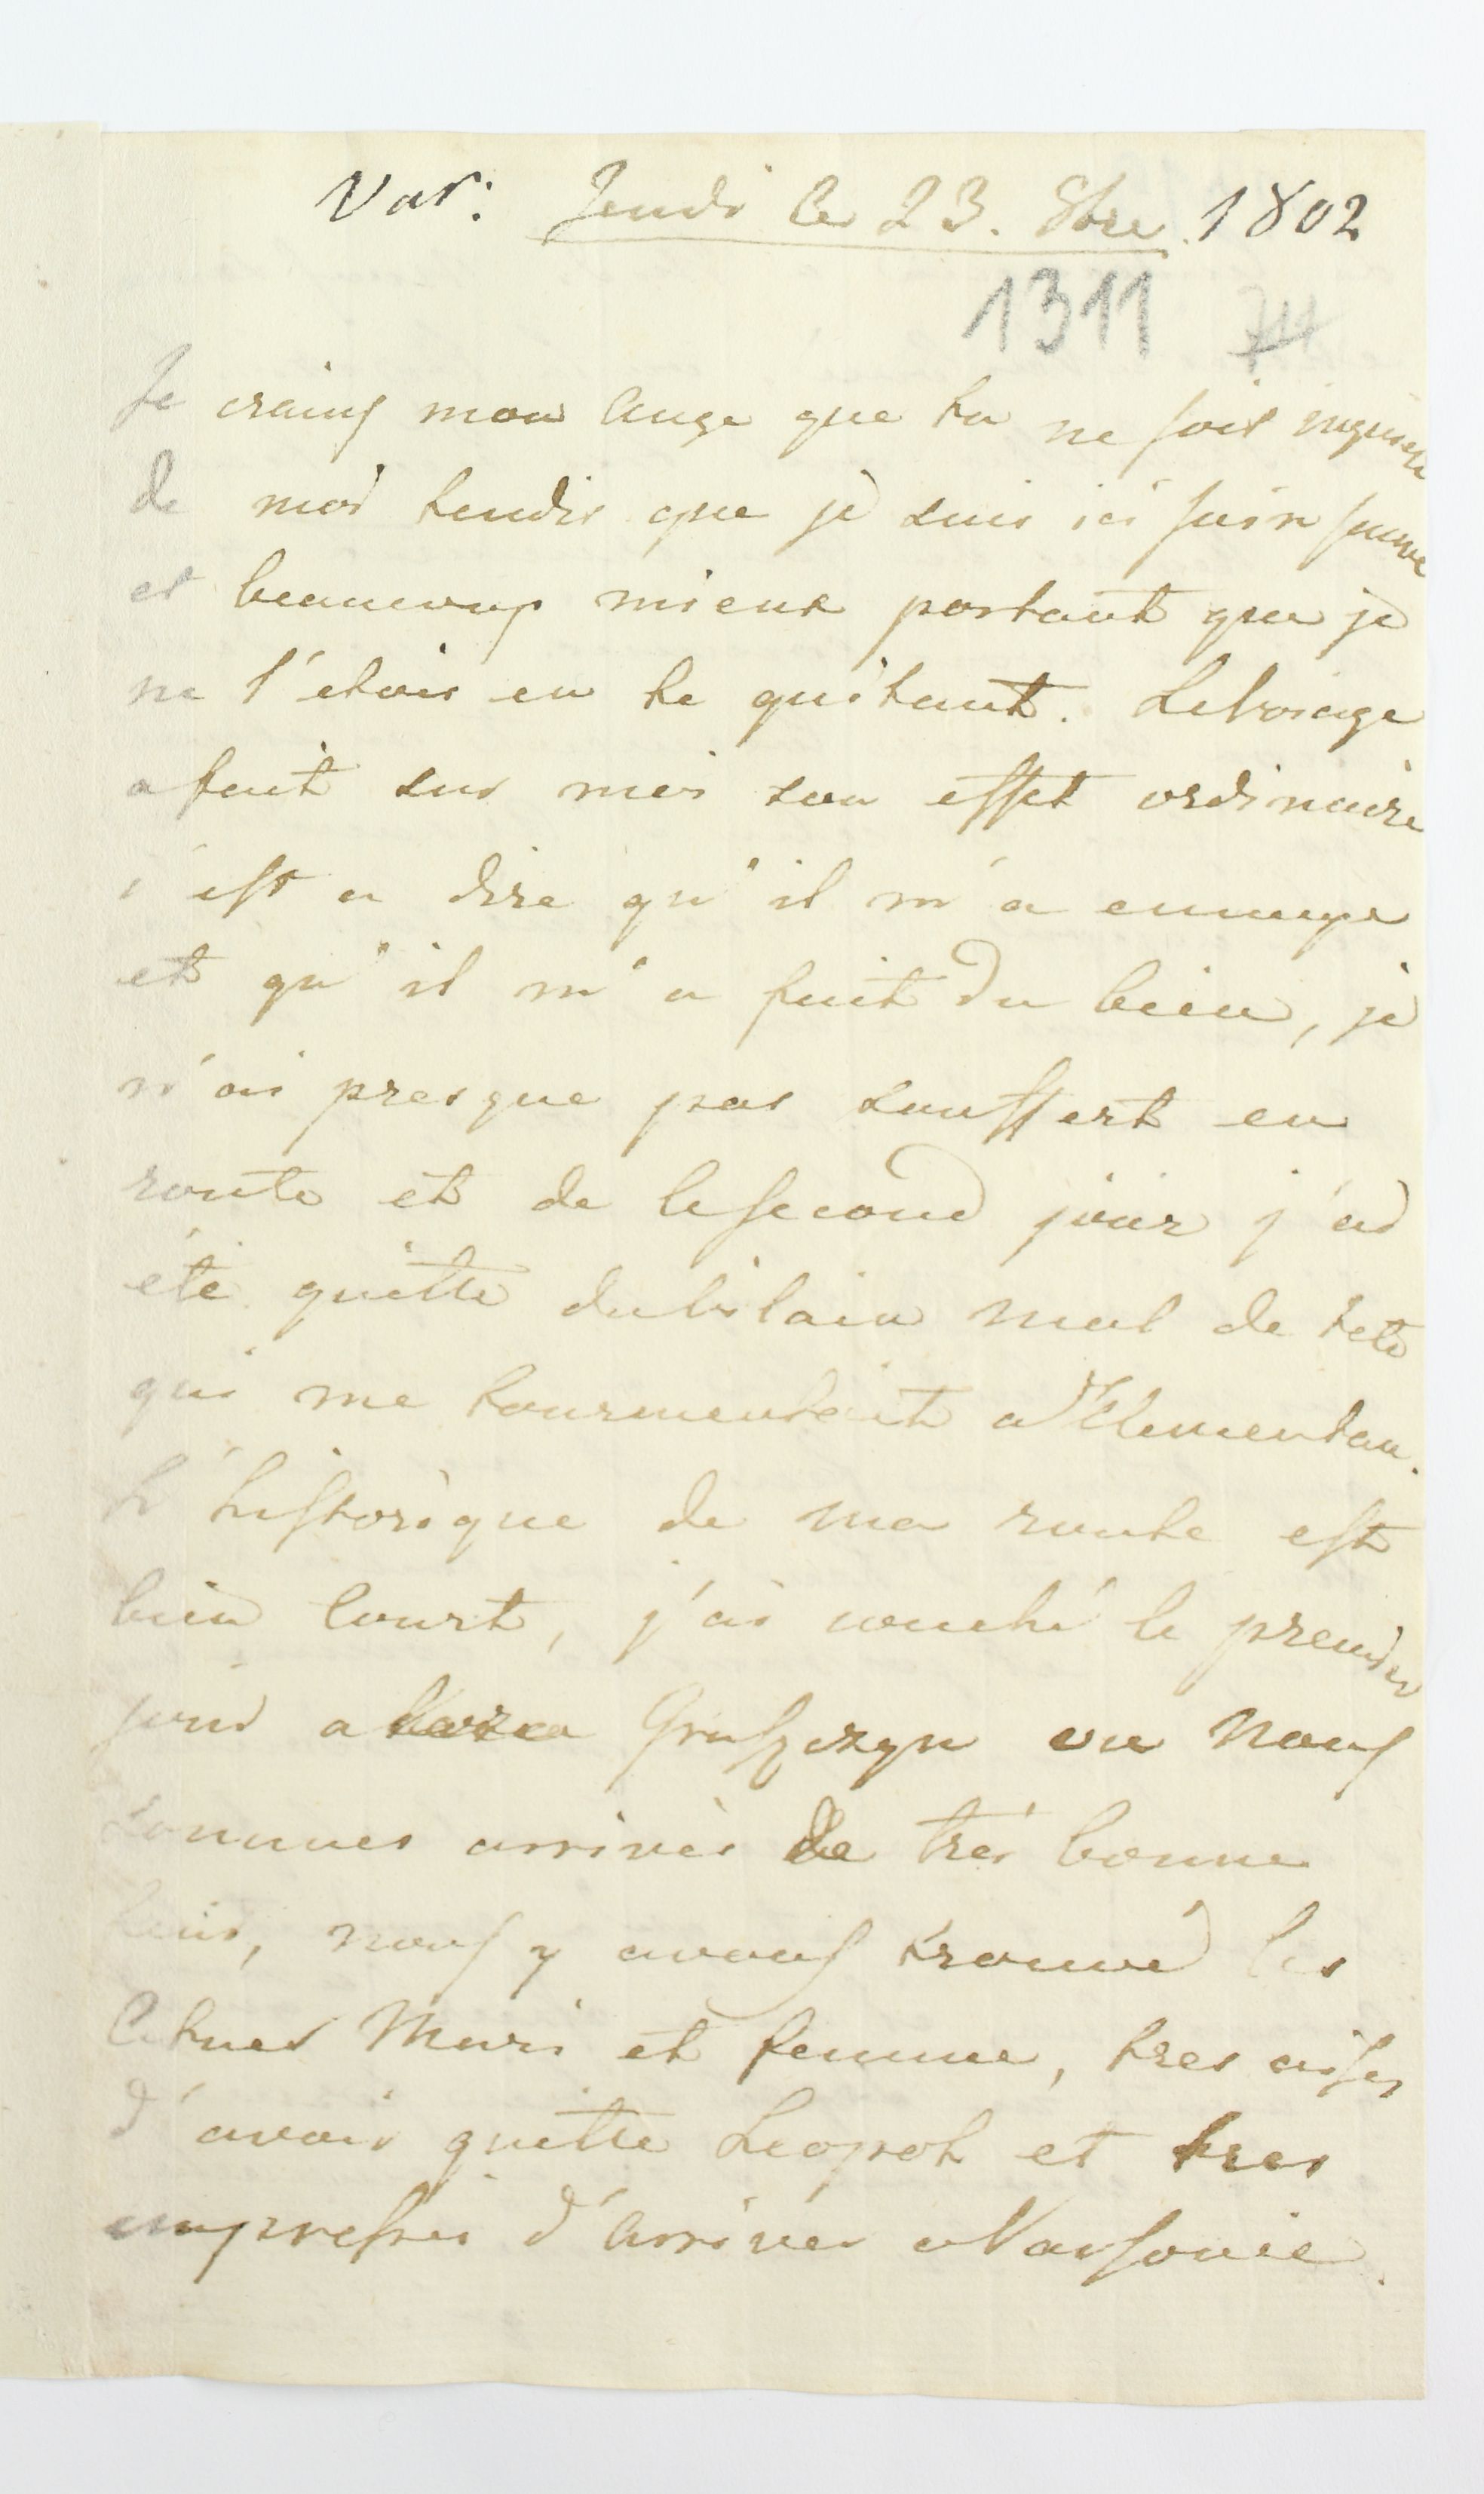 Var: Jeudi le 23. 8bre 1802
1311 711
Je crains mon Ange que tu ne sois inquiete
de moi tendis que je suis ici sain sauve
et beaucoup mieux portant que je
ne l'etois en te quitant. Le Voiage
a fait sur moi son effet ordinaire
c'est a dire qu'il m'a ennuye
et qu'il m'a fait du bien, je
n'ai presque pas souffert en
route et de le second jour j'ai
été quitte du vilain mal de tete
qui me tourmentoit a Klementow.
L'historique de ma route est
bien court, j'ai couché le premier
jour a Gruszczyn ou nous
sommes arrivés de tres bonne
heur, nous y avons trouvé les
Mari et femme, tres aises
d'avoir quitte Leopol et tres
empresses d'arriver a Varsovie.